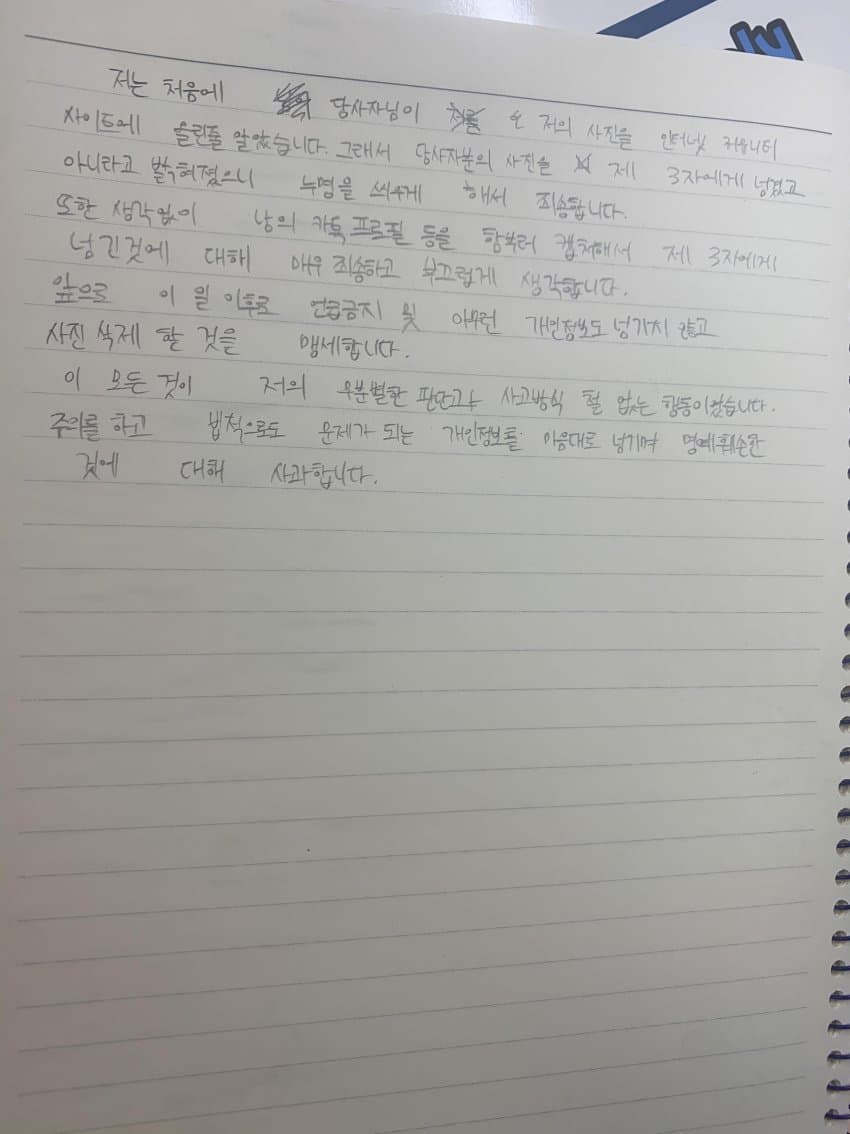 저는 처음에 당사자님이 저의 사진을 인터넷 커뮤니티
사이트에 올린줄 알았습니다. 그래서 당사자분의 사진을 제 3자에게 넘겼고
아니라고 밝혀졌으니 누명을 씌우게 해서 죄송합니다.
또한 생각없이 남의 카톡 프로필 등을 함부러 캡처해서 제 3자에게
넘긴것에 대해 매우 죄송하고 부끄럽게 생각합니다.
앞으로 이 일 이후로 언급금지 및 아무런 개인정보도 넘기지 않고
사진 삭제 할 것을 맹세합니다.
이 모든 것이 저의 무분별한 판단과 사고방식 철 없는 행동이였습니다.
주의를 하고 법적으로도 문제가 되는 개인정보를 마음대로 넘기며 명예훼손한
것에 대해 사과합니다.